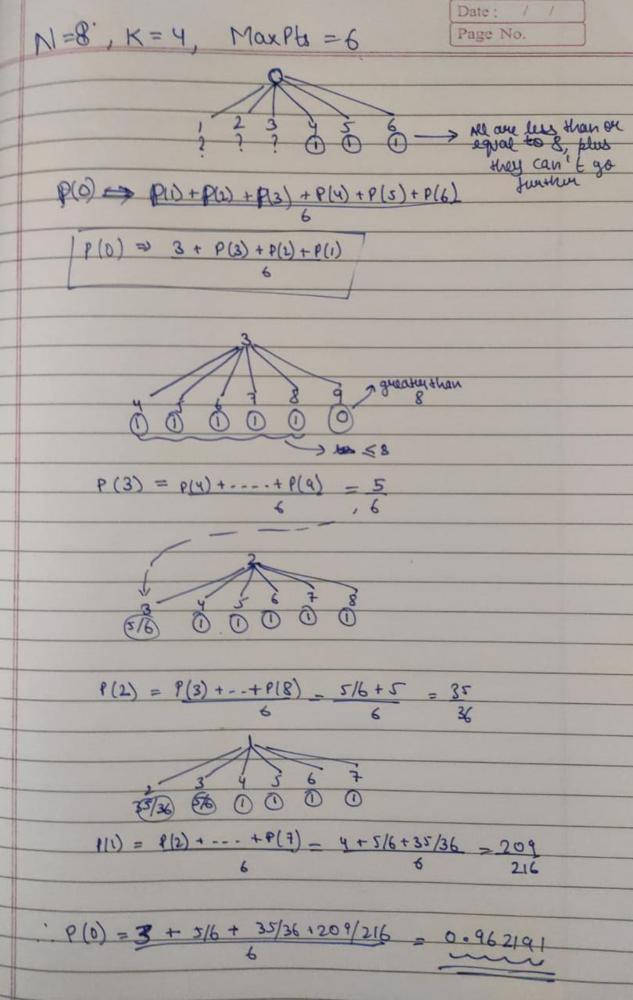 Date : / /
Page No.
N=8 , K = 4, MaxPts = 6
1 2 3 4 5 6
? ? ? 1 1 1
All are less than or
equal to 8, plus
they can't go
further
P(0) ⇔ P(1) + P(2) + P(3) + P(4) + P(5) + P(6)
6
P(0) ⇒ 3 + P(3) + P(2) + P(1)
6
3
4 5 6 7 8 9
1 1 1 1 1 0
greater than
8
≤ 8
P(3) = P(4) + ---- + P(9) = 5
6 , 6
2
3 4 5 6 7 8
5/6 1 1 1 1 1
P(2) = P(3) + -- + P(8) = 5/6 + 5 = 35
6 6 36
1
2 3 4 5 6 7
35/36 5/6 1 1 1 1
P(1) = P(2) + ---- + P(7) = 4 + 5/6 + 35/36 = 209
6 6 216
∴ P(0) = 3 + 5/6 + 35/36 + 209/216 = 0.962191
6